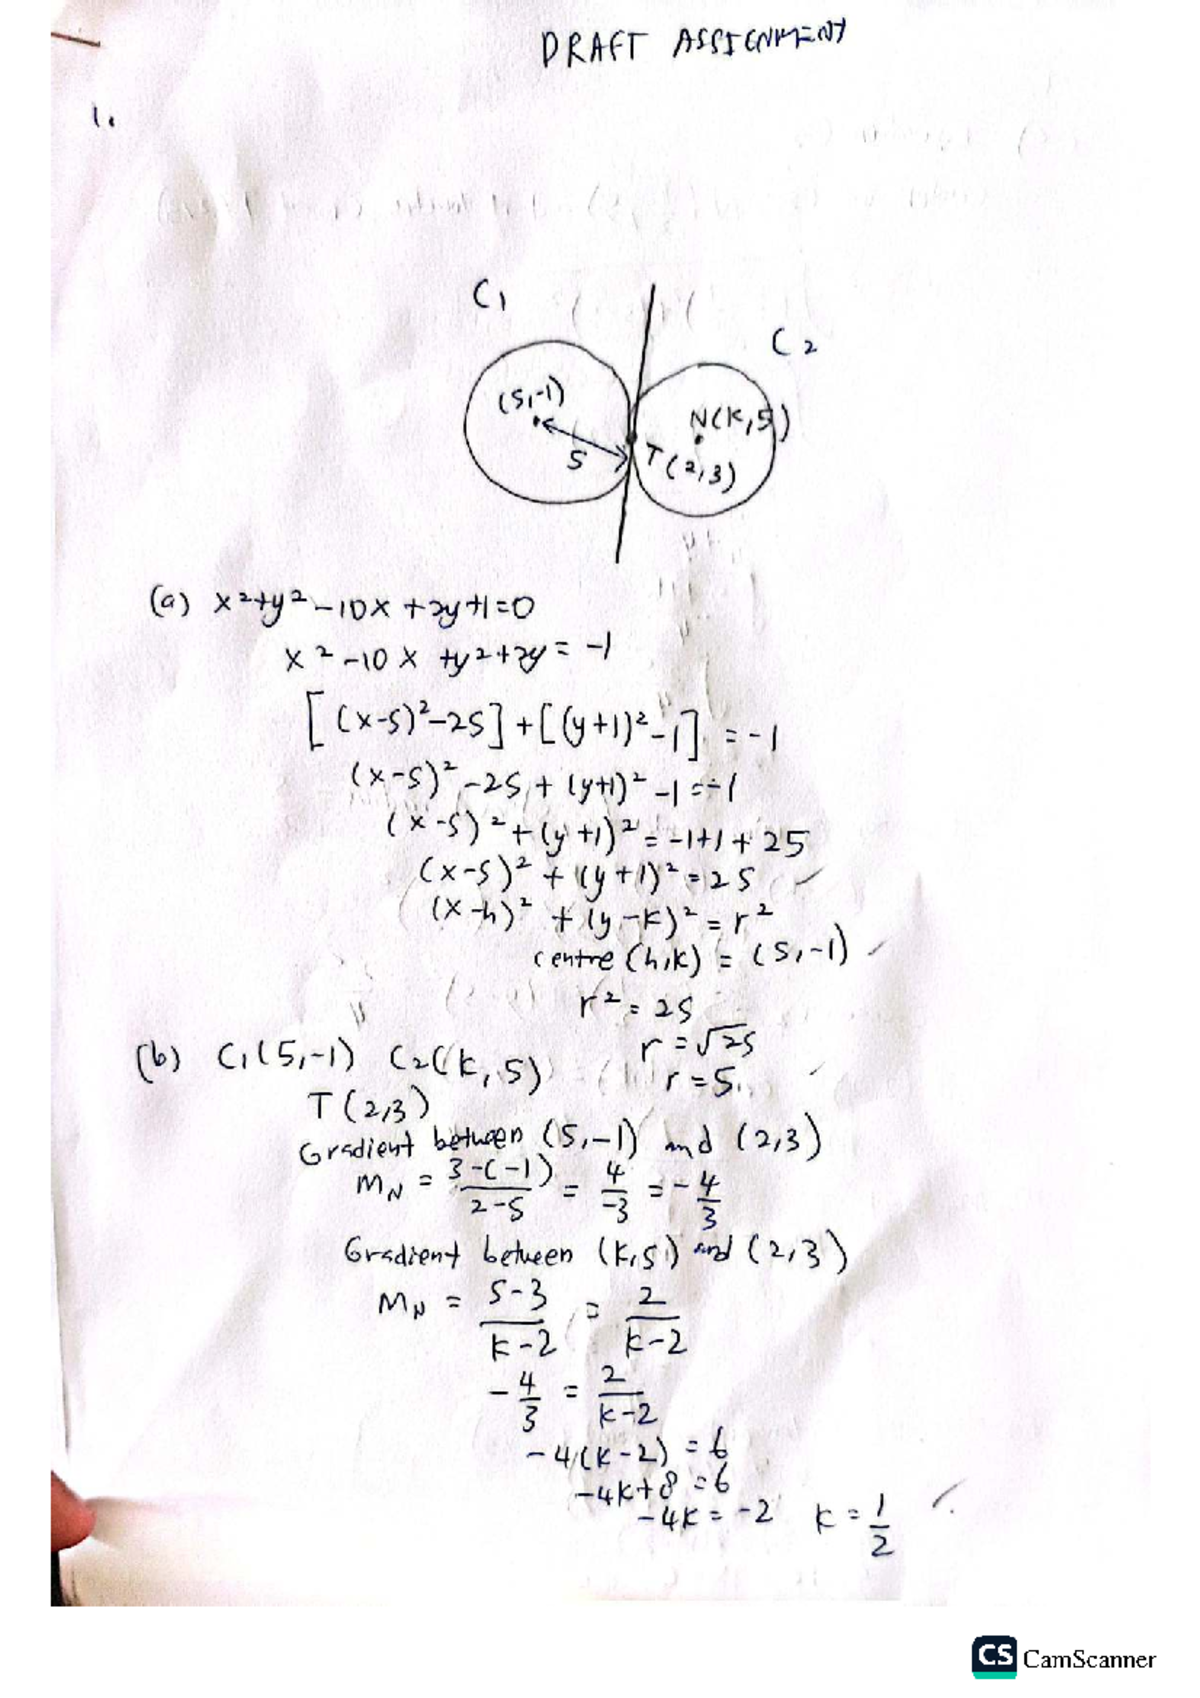 DRAFT ASSIGNMENT
1.
C₁
C₂
(5,-1)
N(K,5)
5
T(2,3)
(a) x²+y²-10x+2y+1=0
x²-10x+y²+2y=-1
[(x-5)²-25]+[(y+1)²-1]=-1
(x-5)²-25+(y+1)²-1=-1
(x-5)²+(y+1)²=-1+1+25
(x-5)²+(y+1)²=25
(x-h)²+(y-k)²=r²
centre (h,k) = (5,-1)
r²=25
r=√25
r=5
(b) C₁(5,-1) C₂(k,5)
T(2,3)
Gradient between (5,-1) and (2,3)
M_N = 3-(-1)/2-5 = 4/-3 = -4/3
Gradient between (k,5) and (2,3)
M_N = 5-3/k-2 = 2/k-2
-4/3 = 2/k-2
-4(k-2) = 6
-4k+8 = 6
-4k = -2 k = 1/2
CS CamScanner